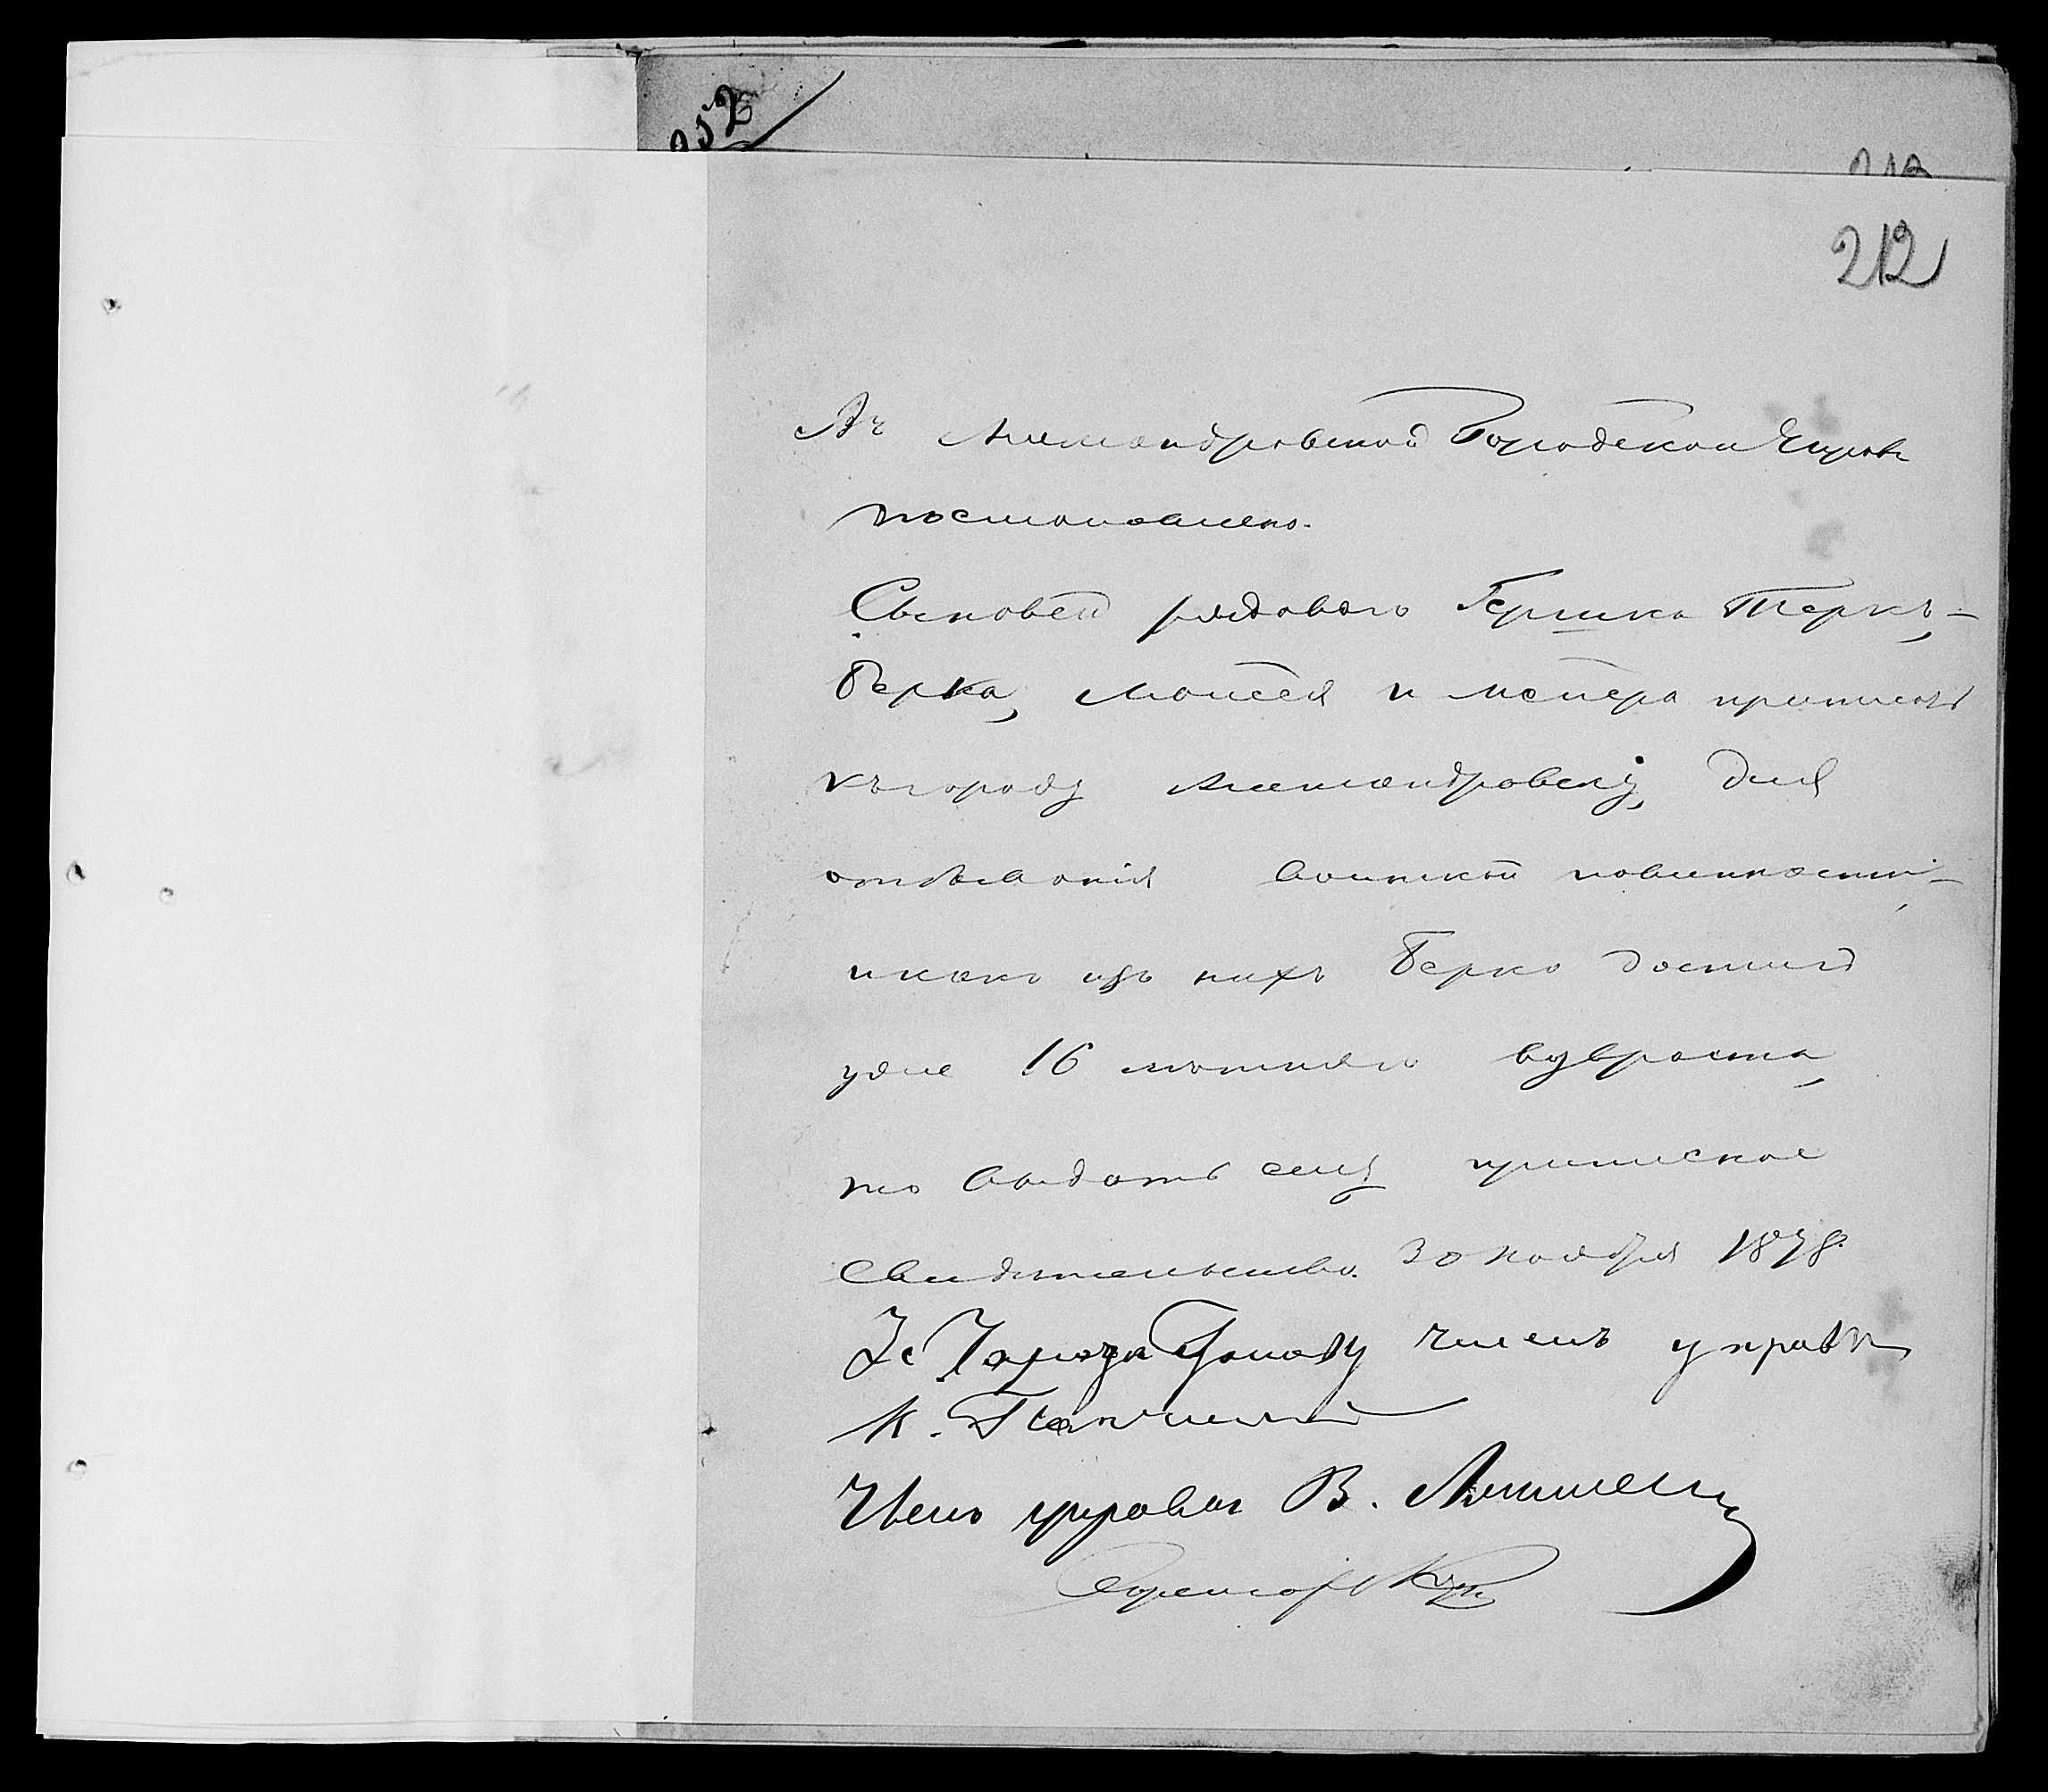 252
213
212
Въ Александровской Городской Управѣ
постановлено.
Сыновей рядового Гершка Теркъ,-
Берка, Моисея и Мейера приписать
къ городу Александровску, для
отбыванія воинской повинности,-
и какъ изъ нихъ Берко достигъ
уже 16 лѣтняго возраста,
то выдать ему приписное
свидѣтельство. 30 ноября 1878.
За Городск Голову членъ управы
К.
Членъ управы В.